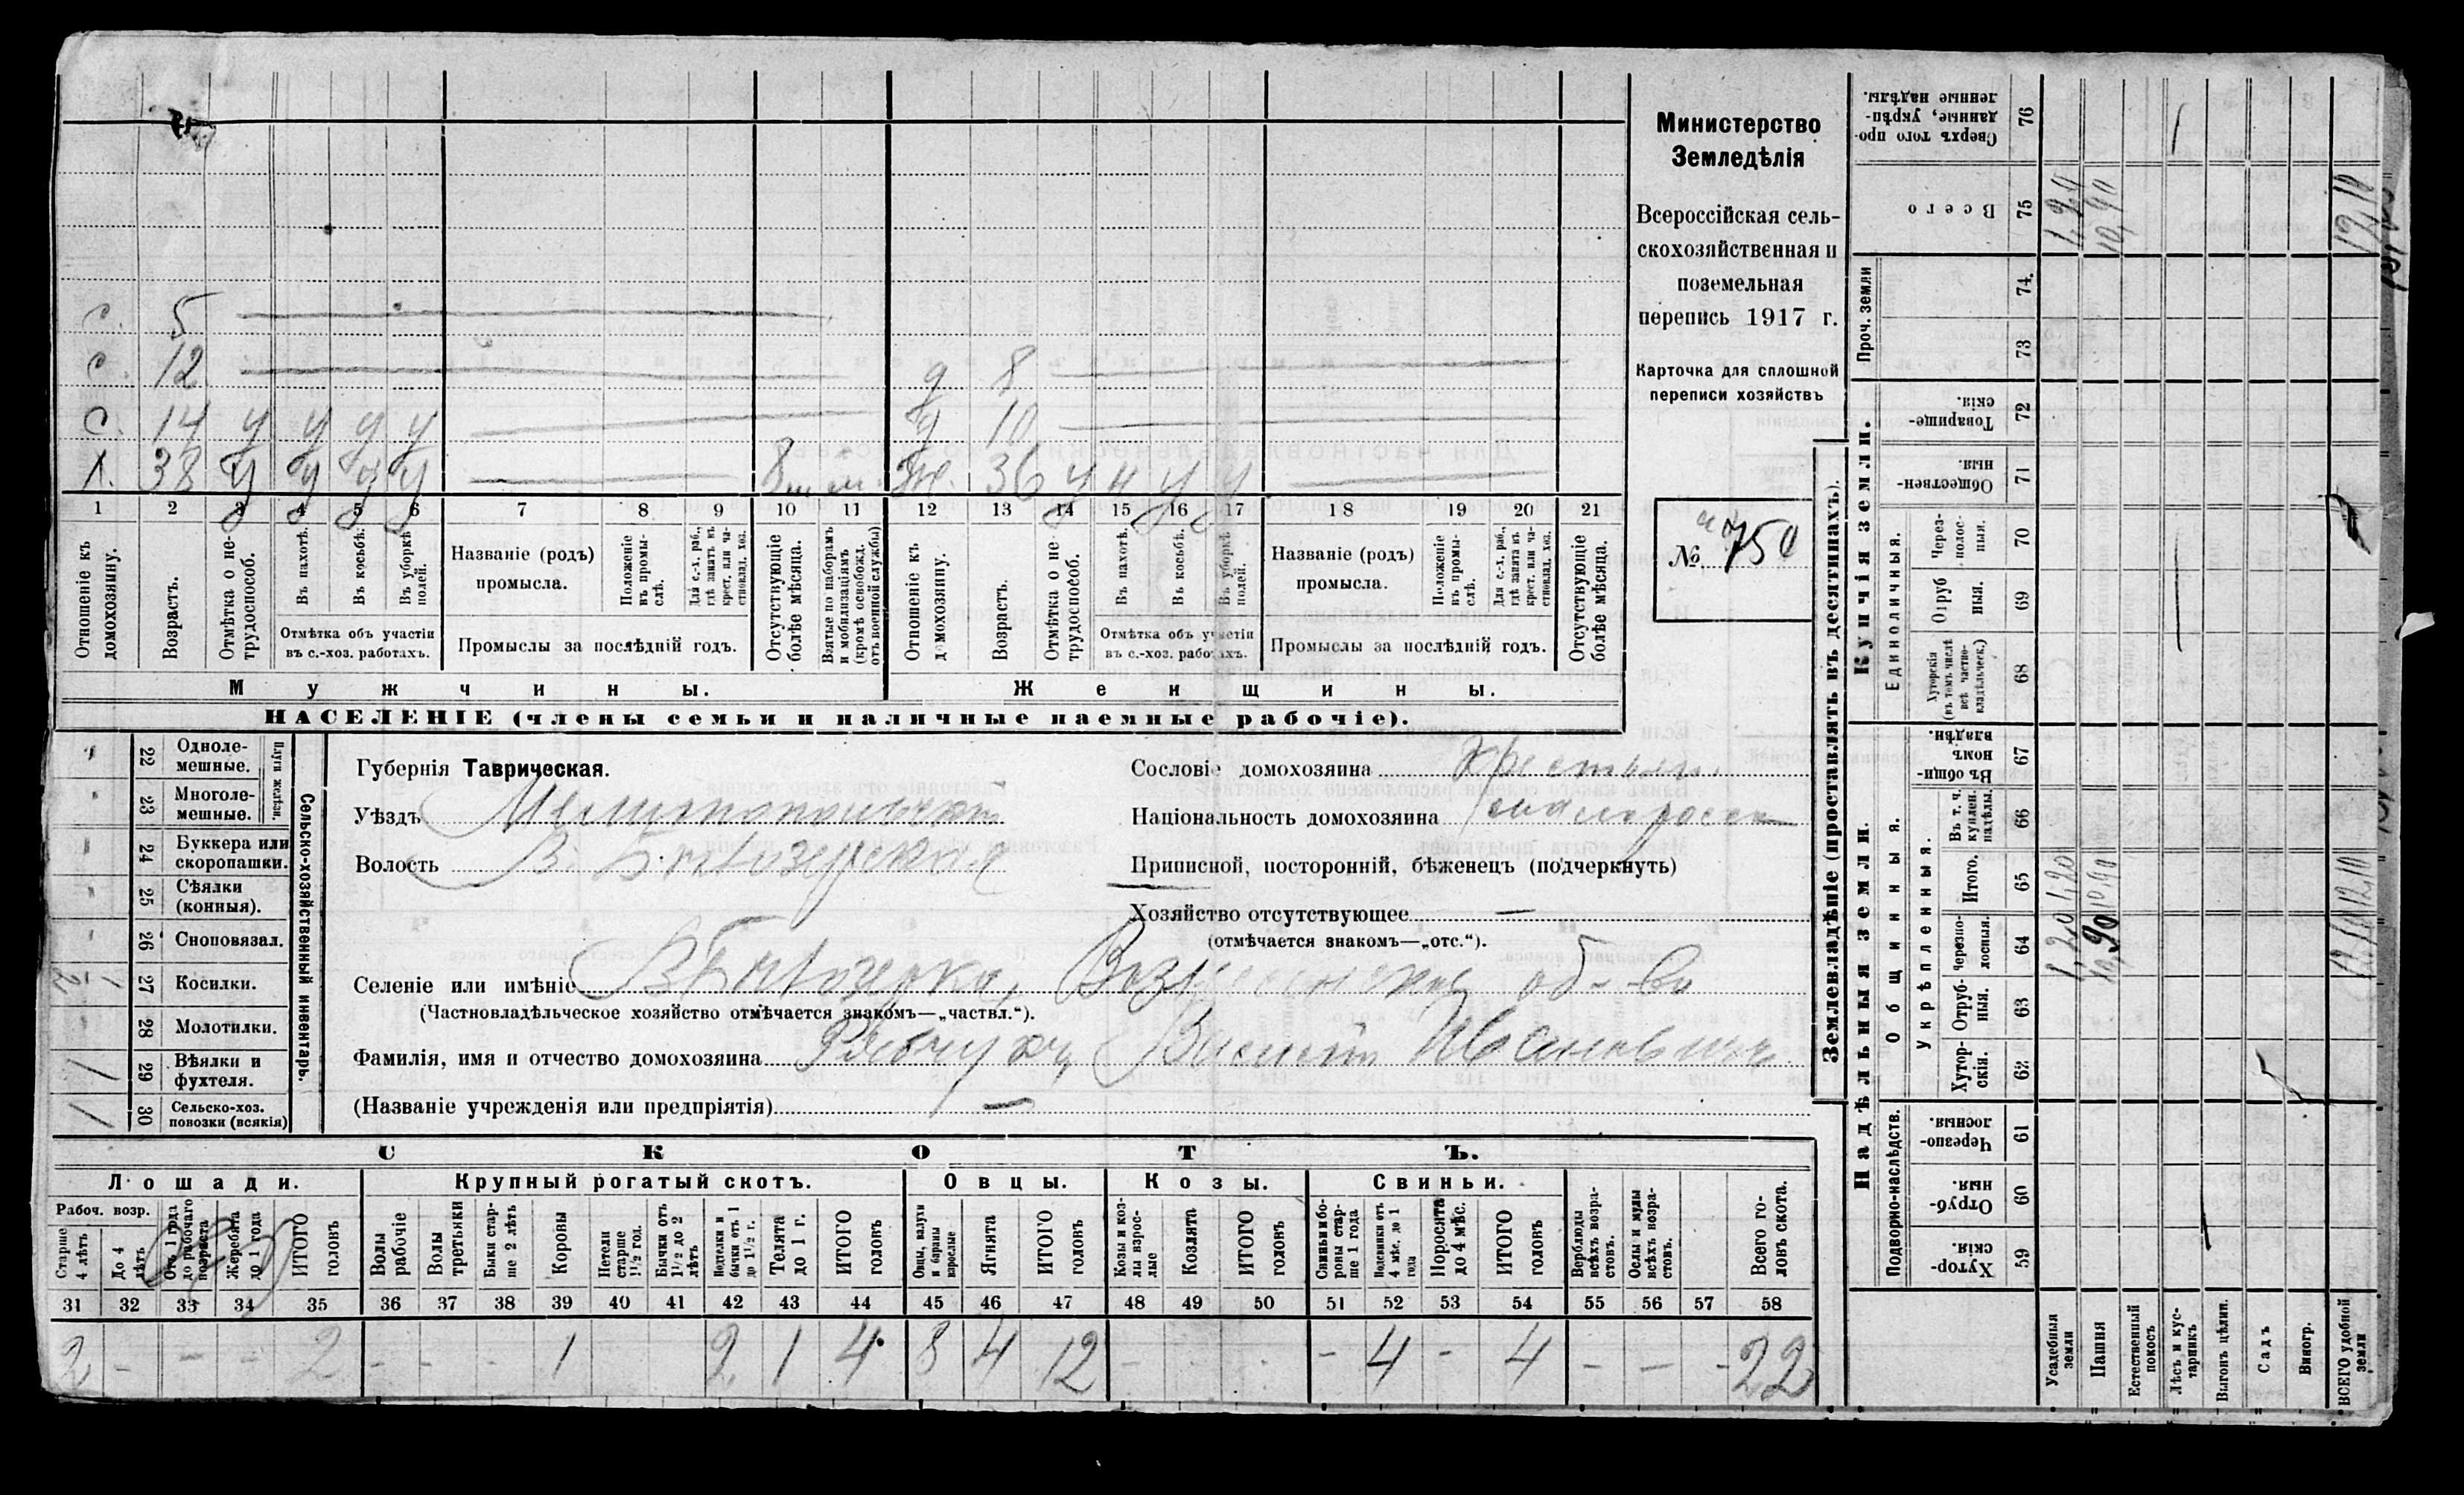 с. 5
с. 12 д 8
с. 14 у у у у д 10
х. 38 у у у у 8 ж. 36 у н у у
1 2 3 4 5 6 7 8 9 10 11 12 13 14 15 16 17 18 19 20 21
Отношеніе къ домохозяину.
Возрастъ.
Отмѣтка о нетрудоспособ.
Въ пахотѣ.
Въ косьбѣ.
Въ уборкѣ полей.
Отмѣтка объ участіи
въ с.-хоз. работахъ.
Названіе (родъ)
промысла.
Положеніе въ промыслѣ.
Для с.-х. раб., гдѣ занятъ въ крест. или частновлад. хоз.
Промыслы за послѣдній годъ.
Отсутствующіе болѣе мѣсяца.
Взятые по наборамъ и мобилизаціямъ (кромѣ освобожд. отъ военной службы)
Отношеніе къ домохозяину.
Возрастъ.
Отмѣтка о нетрудоспособ.
Въ пахотѣ.
Въ косьбѣ.
Въ уборкѣ полей.
Отмѣтка объ участіи
въ с.-хоз. работахъ.
Названіе (родъ)
промысла.
Положеніе въ промыслѣ.
Для с.-х. раб., гдѣ занята въ крест. или частновлад. хоз.
Промыслы за послѣдній годъ.
Отсутствующіе болѣе мѣсяца.
Мужчины. Женщины.
НАСЕЛЕНІЕ (члены семьи и наличные наемные рабочіе).
Министерство
Земледѣлія
Всероссійская сель-
скохозяйственная и
поземельная
перепись 1917 г.
Карточка для сплошной
переписи хозяйствъ
№ 750
Сельско-хозяйственный инвентарь.
Плуги желѣзн.
22 Однолемешные.
23 Многолемешные.
24 Буккера или скоропашки.
25 Сѣялки (конныя).
26 Сноповязал.
1/2 27 Косилки.
28 Молотилки.
/ 29 Вѣялки и фухтеля.
/ 30 Сельско-хоз. повозки (всякія)
Губернія Таврическая.
Уѣздъ Мелитопольскій
Волость В. Бѣлозерская
Сословіе домохозяина Крестьян.
Національность домохозяина малоросс
Приписной, посторонній, бѣженецъ (подчеркнуть)
Хозяйство отсутствующее —
(отмѣчается знакомъ—„отс.“).
Селеніе или имѣніе В Бѣлозерка, Вознесенское об-во
(Частновладѣльческое хозяйство отмѣчается знакомъ—„частвл.“).
Фамилія, имя и отчество домохозяина Рябчукъ Василій Ивановичъ
(Названіе учрежденія или предпріятія) —
СКОТЪ.
Лошади. Крупный рогатый скотъ. Овцы. Козы. Свиньи.
Рабоч. возр.
Старше 4 лѣтъ
До 4 лѣтъ
Отъ 1 года до рабочаго возраста
Жеребята до 1 года
ИТОГО головъ
Волы рабочіе
Волы третьяки
Быки старше 2 лѣтъ
Коровы
Нетели старше 1½ год.
Бычки отъ 1½ до 2 лѣтъ
Нетелки и бычки отъ 1 до 1½ г.
Телята до 1 г.
ИТОГО головъ
Овцы, валухи и бараны взрослые
Ягнята
ИТОГО головъ
Козы и козлы взрослые
Козлята
ИТОГО головъ
Свиньи и боровы старше 1 года
Подсвинки отъ 4 мѣс. до 1 года
Поросята до 4 мѣс.
ИТОГО головъ
Верблюды всѣхъ возрастовъ.
Ослы и мулы всѣхъ возрастовъ.
Всего головъ скота.
31 32 33 34 35 36 37 38 39 40 41 42 43 44 45 46 47 48 49 50 51 52 53 54 55 56 57 58
2 - - - 2 - - - 1 2 1 4 8 4 12 - - 4 - 4 - - - 22
Землевладѣніе (проставлять въ десятинахъ).
Надѣльныя земли. Купчія земли.
Проч. земли
Подворно-наслѣдств.
Общинныя.
Укрѣпленныя.
Единоличныя.
Сверхъ того проданные, укрѣпленные надѣлы. 76
Всего 75
74
73
Товарищескія. 72
Общественныя. 71
Черезполосныя. 70
Отрубныя. 69
Хуторскія (въ томъ числѣ всѣ частновладѣльческ.) 68
Въ общинномъ владѣн. 67
Въ т. ч. куплен. надѣлы. 66
Итого. 65
Черезполосныя. 64
Отрубныя. 63
Хуторскія. 62
Черезполосныя. 61
Отрубныя. 60
Хуторскія. 59
Усадебныя земли 1,20 1,20 1,20
Пашня 10,90 10,90 10,90
Естественный покосъ
Лѣсъ и кустарникъ
Выгонъ цѣлин.
Садъ
Виногр.
ВСЕГО удобной земли 12,10 12,10 12,10